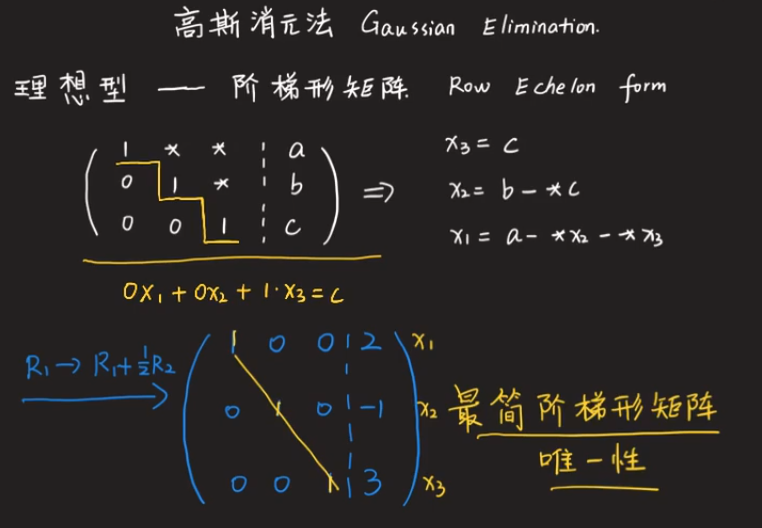 高斯消元法 Gaussian Elimination.
理想型 — 阶梯形矩阵. Row Echelon form
1 * * a
0 1 * b
0 0 1 c
⇒
x₃ = c
x₂ = b - *c
x₁ = a - *x₂ - *x₃
0x₁ + 0x₂ + 1·x₃ = c
R₁ → R₁ + ½R₂
1 0 0 2 x₁
0 1 0 -1 x₂
0 0 1 3 x₃
最简阶梯形矩阵
唯一性